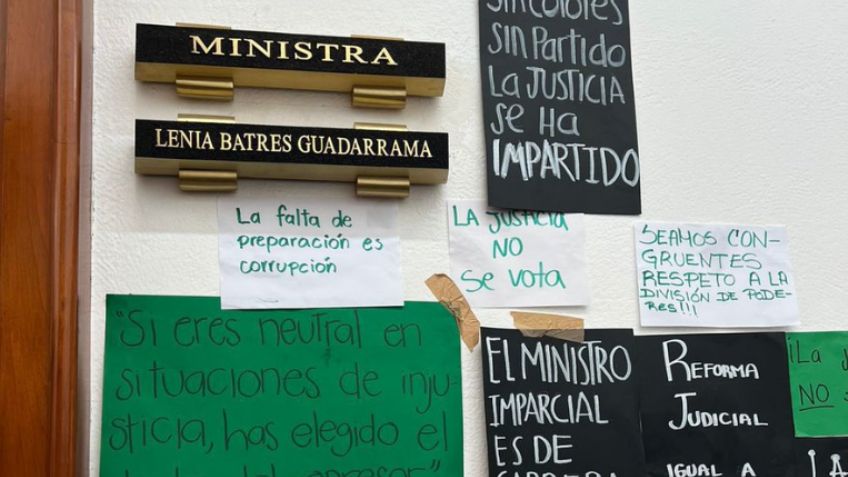 MINISTRA
LENIA BATRES GUADARRAMA
sin colores
sin Partido
LA JUSTICIA
se Ha
IMPARTIDO
La falta de
preparación es
corrupción
LA JUSTICIA
NO
Se vota
SEAMOS CON-
GRUENTES
RESPETO A LA
DIVISIÓN DE PODE-
RES!!!
"Si eres neutral en
situaciones de inju-
sticia, has elegido el
del opresor"
EL MINISTRO
IMPARCIAL
ES DE
CARRERA
REFORMA
JUDICIAL
IGUAL A
¡La
NO
LA